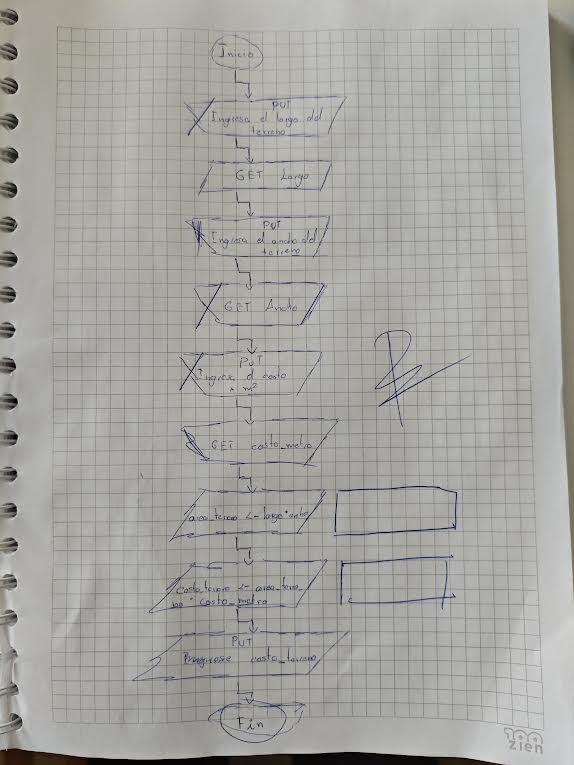 Inicio
PUT
Ingresa el largo del
terreno
GET Largo
PUT
Ingresa el ancho del
terreno
GET Ancho
PUT
Ingresa el costo
x m²
GET costo_metro
area_terreno <- largo*
costo_terreno <- area_terre
no * costo_metro
PUT
costo_terreno
Fin
zien